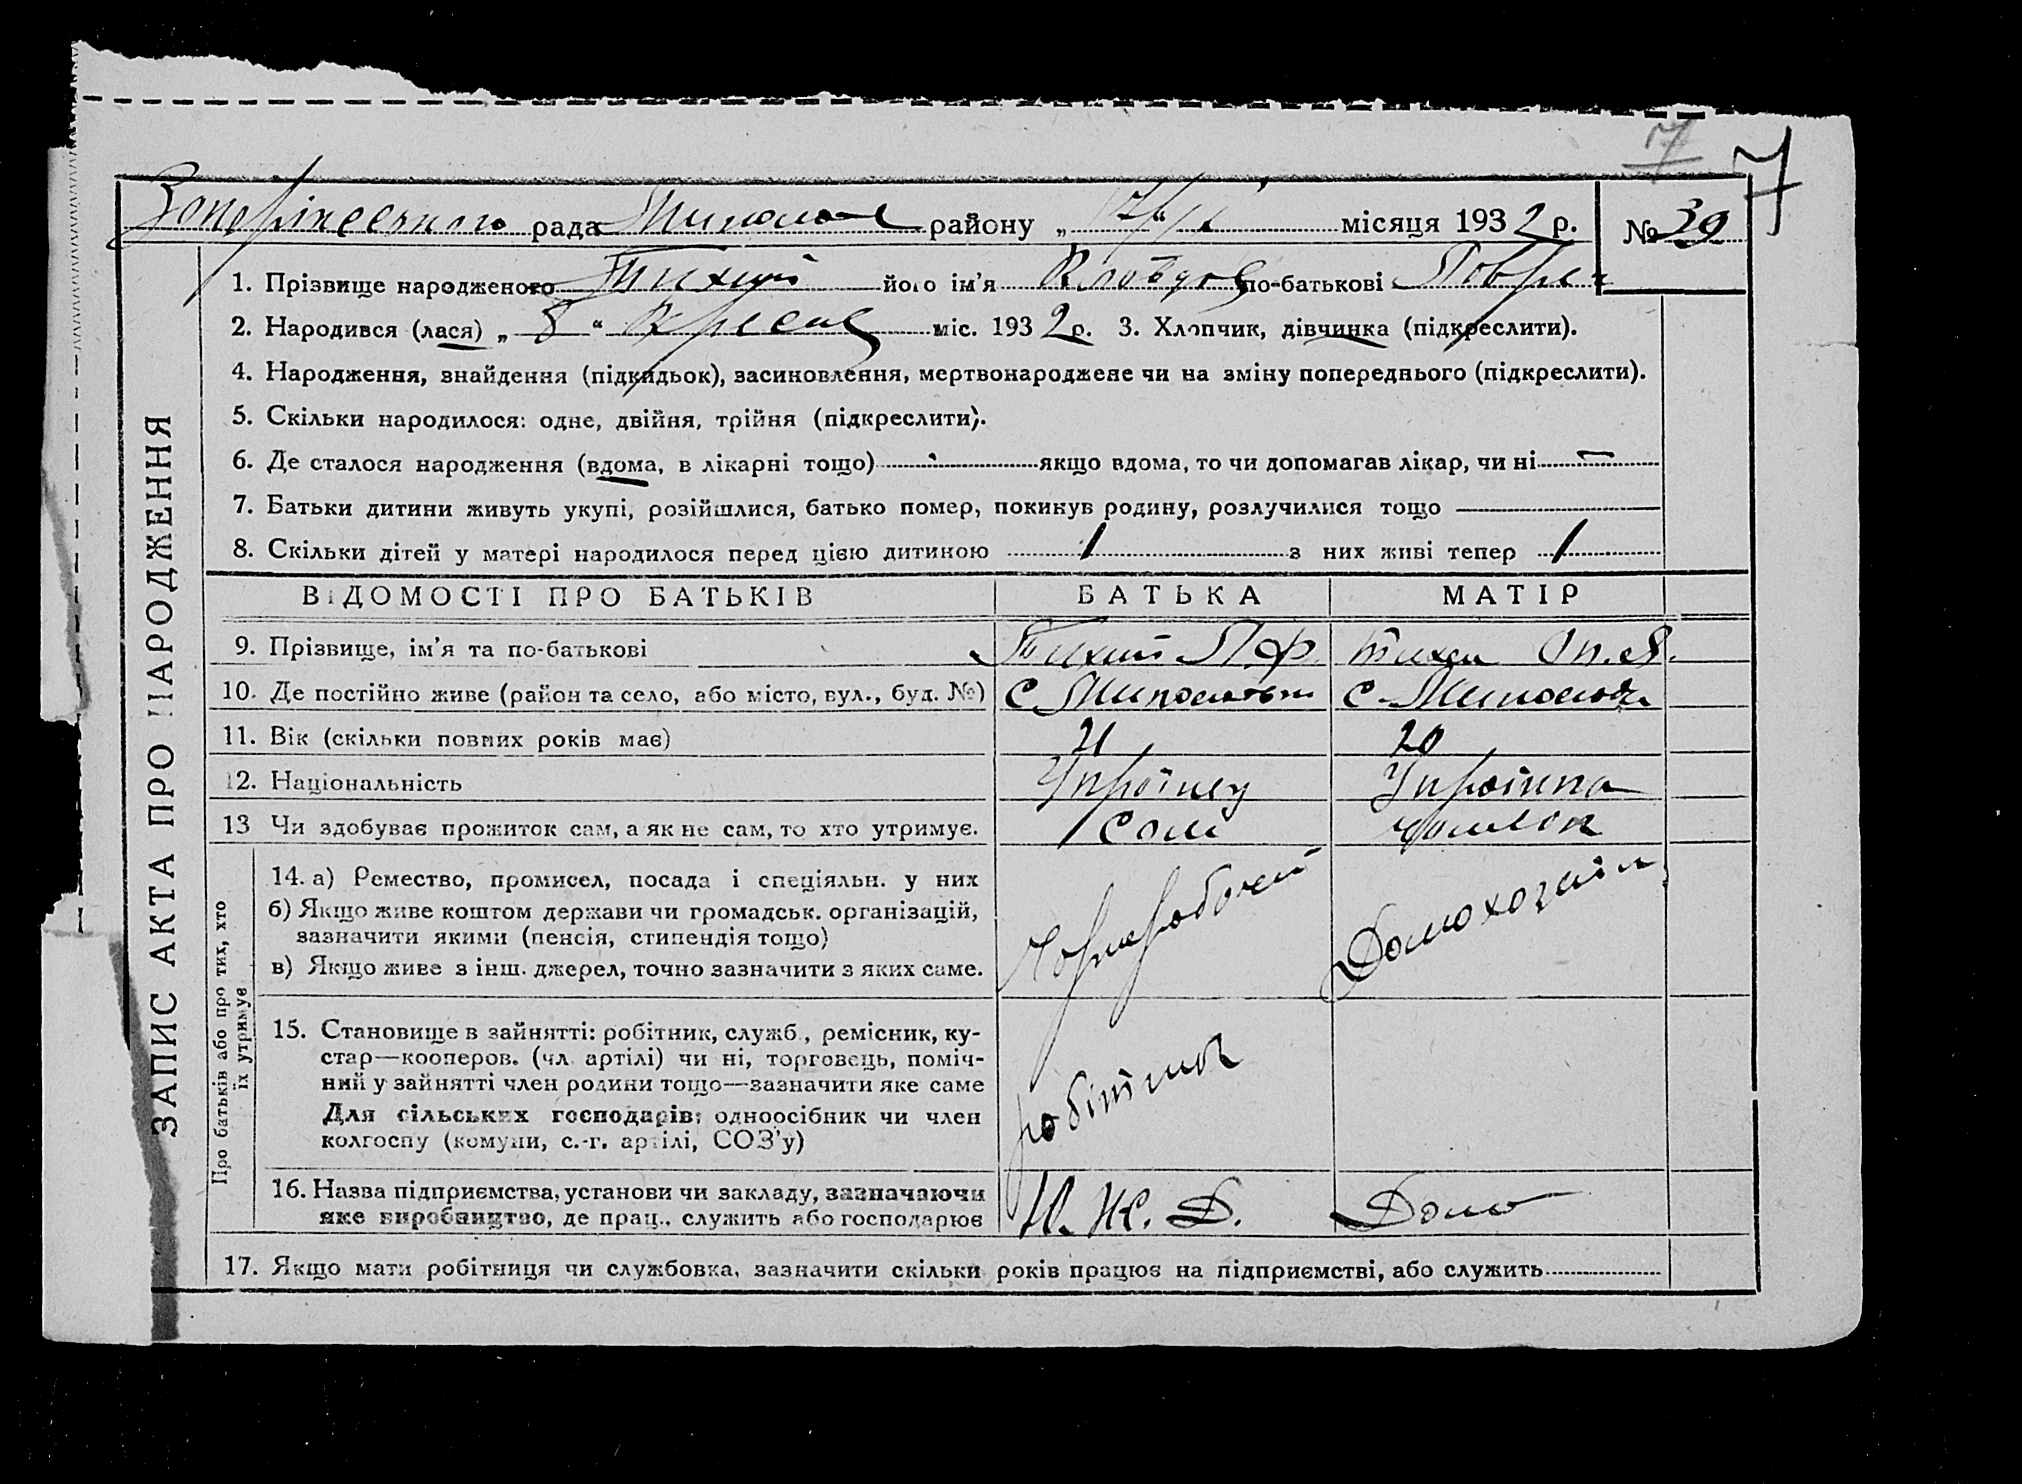 7
7
рада району „ " місяця 1932 р. № 39
ЗАПИС АКТА ПРО НАРОДЖЕННЯ
1. Прізвище народженого Тихий його ім'я по-батькові
2. Народився (лася) „ 8 " міс. 1932 р. 3. Хлопчик, дівчинка (підкреслити).
4. Народження, знайдення (підкидьок), засиновлення, мертвонароджене чи на зміну попереднього (підкреслити).
5. Скільки народилося: одне, двійня, трійня (підкреслити).
6. Де сталося народження (вдома, в лікарні тощо) якщо вдома, то чи допомагав лікар, чи ні —
7. Батьки дитини живуть укупі, розійшлися, батько помер, покинув родину, розлучилися тощо
8. Скільки дітей у матері народилося перед цією дитиною 1 з них живі тепер 1
ВІДОМОСТІ ПРО БАТЬКІВ БАТЬКА МАТІР
9. Прізвище, ім'я та по-батькові Тихий П. Ф. Тиха
10. Де постійно живе (район та село, або місто, вул., буд. №) с. с.
11. Вік (скільки повних років має) 21 20
12. Національність Українец Українка
13 Чи здобуває прожиток сам, а як не сам, то хто утримує. Сам
Про батьків або про тих, хто
їх утримує
14. а) Ремество, промисел, посада і спеціяльн. у них
б) Якщо живе коштом держави чи громадськ. організацій,
зазначити якими (пенсія, стипендія тощо)
в) Якщо живе з інш. джерел, точно зазначити з яких саме.
Чорноробочий Домохозяйка
15. Становище в зайнятті: робітник, служб., ремісник, ку-
стар—кооперов. (чл. артілі) чи ні, торговець, поміч-
ний у зайнятті член родини тощо—зазначити яке саме
Для сільських господарів: одноосібник чи член
колгоспу (комуни, с.-г. артілі, СОЗ'у)
робітник
16. Назва підприємства, установи чи закладу, зазначаючи
яке виробництво, де прац., служить або господарює
Ю. Ж. Д. Дома
17. Якщо мати робітниця чи службовка, зазначити скільки років працює на підприємстві, або служить